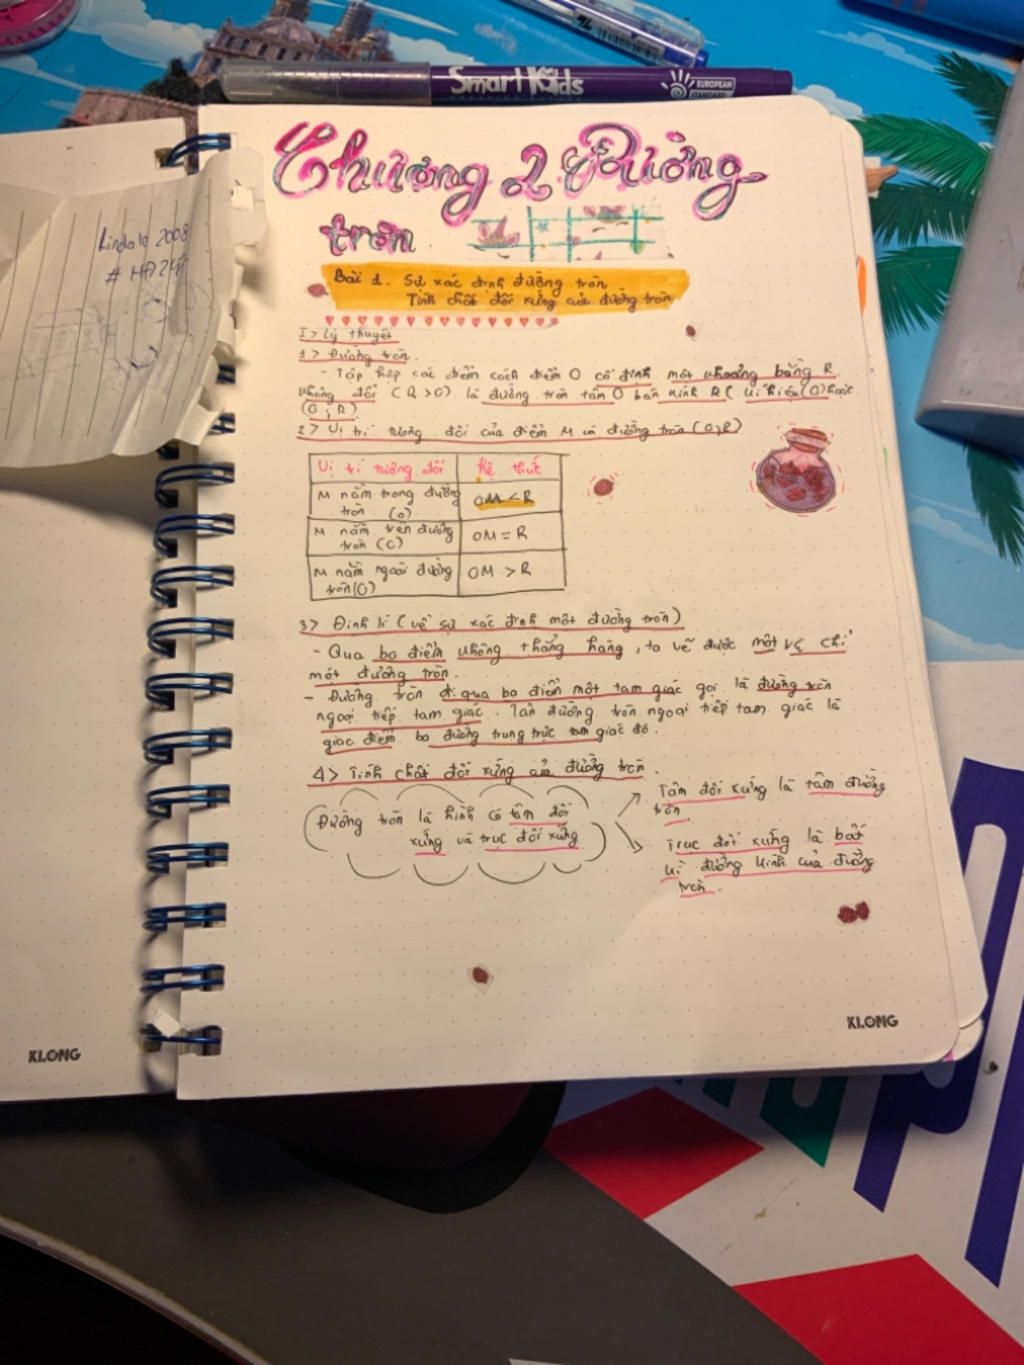 Smart Kids
EUROPEAN
STANDARD
Chương 2 Đường
tròn
Lindald 2008
Bài 1. Sự xác định đường tròn
Tính chất đối xứng của đường tròn
I> Lý thuyết
1> Đường tròn
- Tập hợp các điểm cách điểm O cố định một khoảng bằng R
không đổi (R>0) là đường tròn tâm O bán kính R ( kí hiệu (O) hoặc
(O; R)
2> Vị trí tương đối của điểm M và đường tròn (O,R)
Vị trí tương đối Hệ thức
M nằm trong đường OM < R
tròn (O)
M nằm trên đường OM = R
tròn (O)
M nằm ngoài đường OM > R
tròn (O)
3> Định lí (về sự xác định một đường tròn)
- Qua ba điểm không thẳng hàng, ta vẽ được một và chỉ
một đường tròn.
- Đường tròn đi qua ba điểm một tam giác gọi là đường tròn
ngoại tiếp tam giác. Tâm đường tròn ngoại tiếp tam giác là
giao điểm ba đường trung trực tam giác đó.
4> Tính chất đối xứng của đường tròn.
Đường tròn là hình có tâm đối
xứng và trục đối xứng
Tâm đối xứng là tâm đường
tròn
Trục đối xứng là bất
kì đường kính của đường
tròn.
KLONG
KLONG